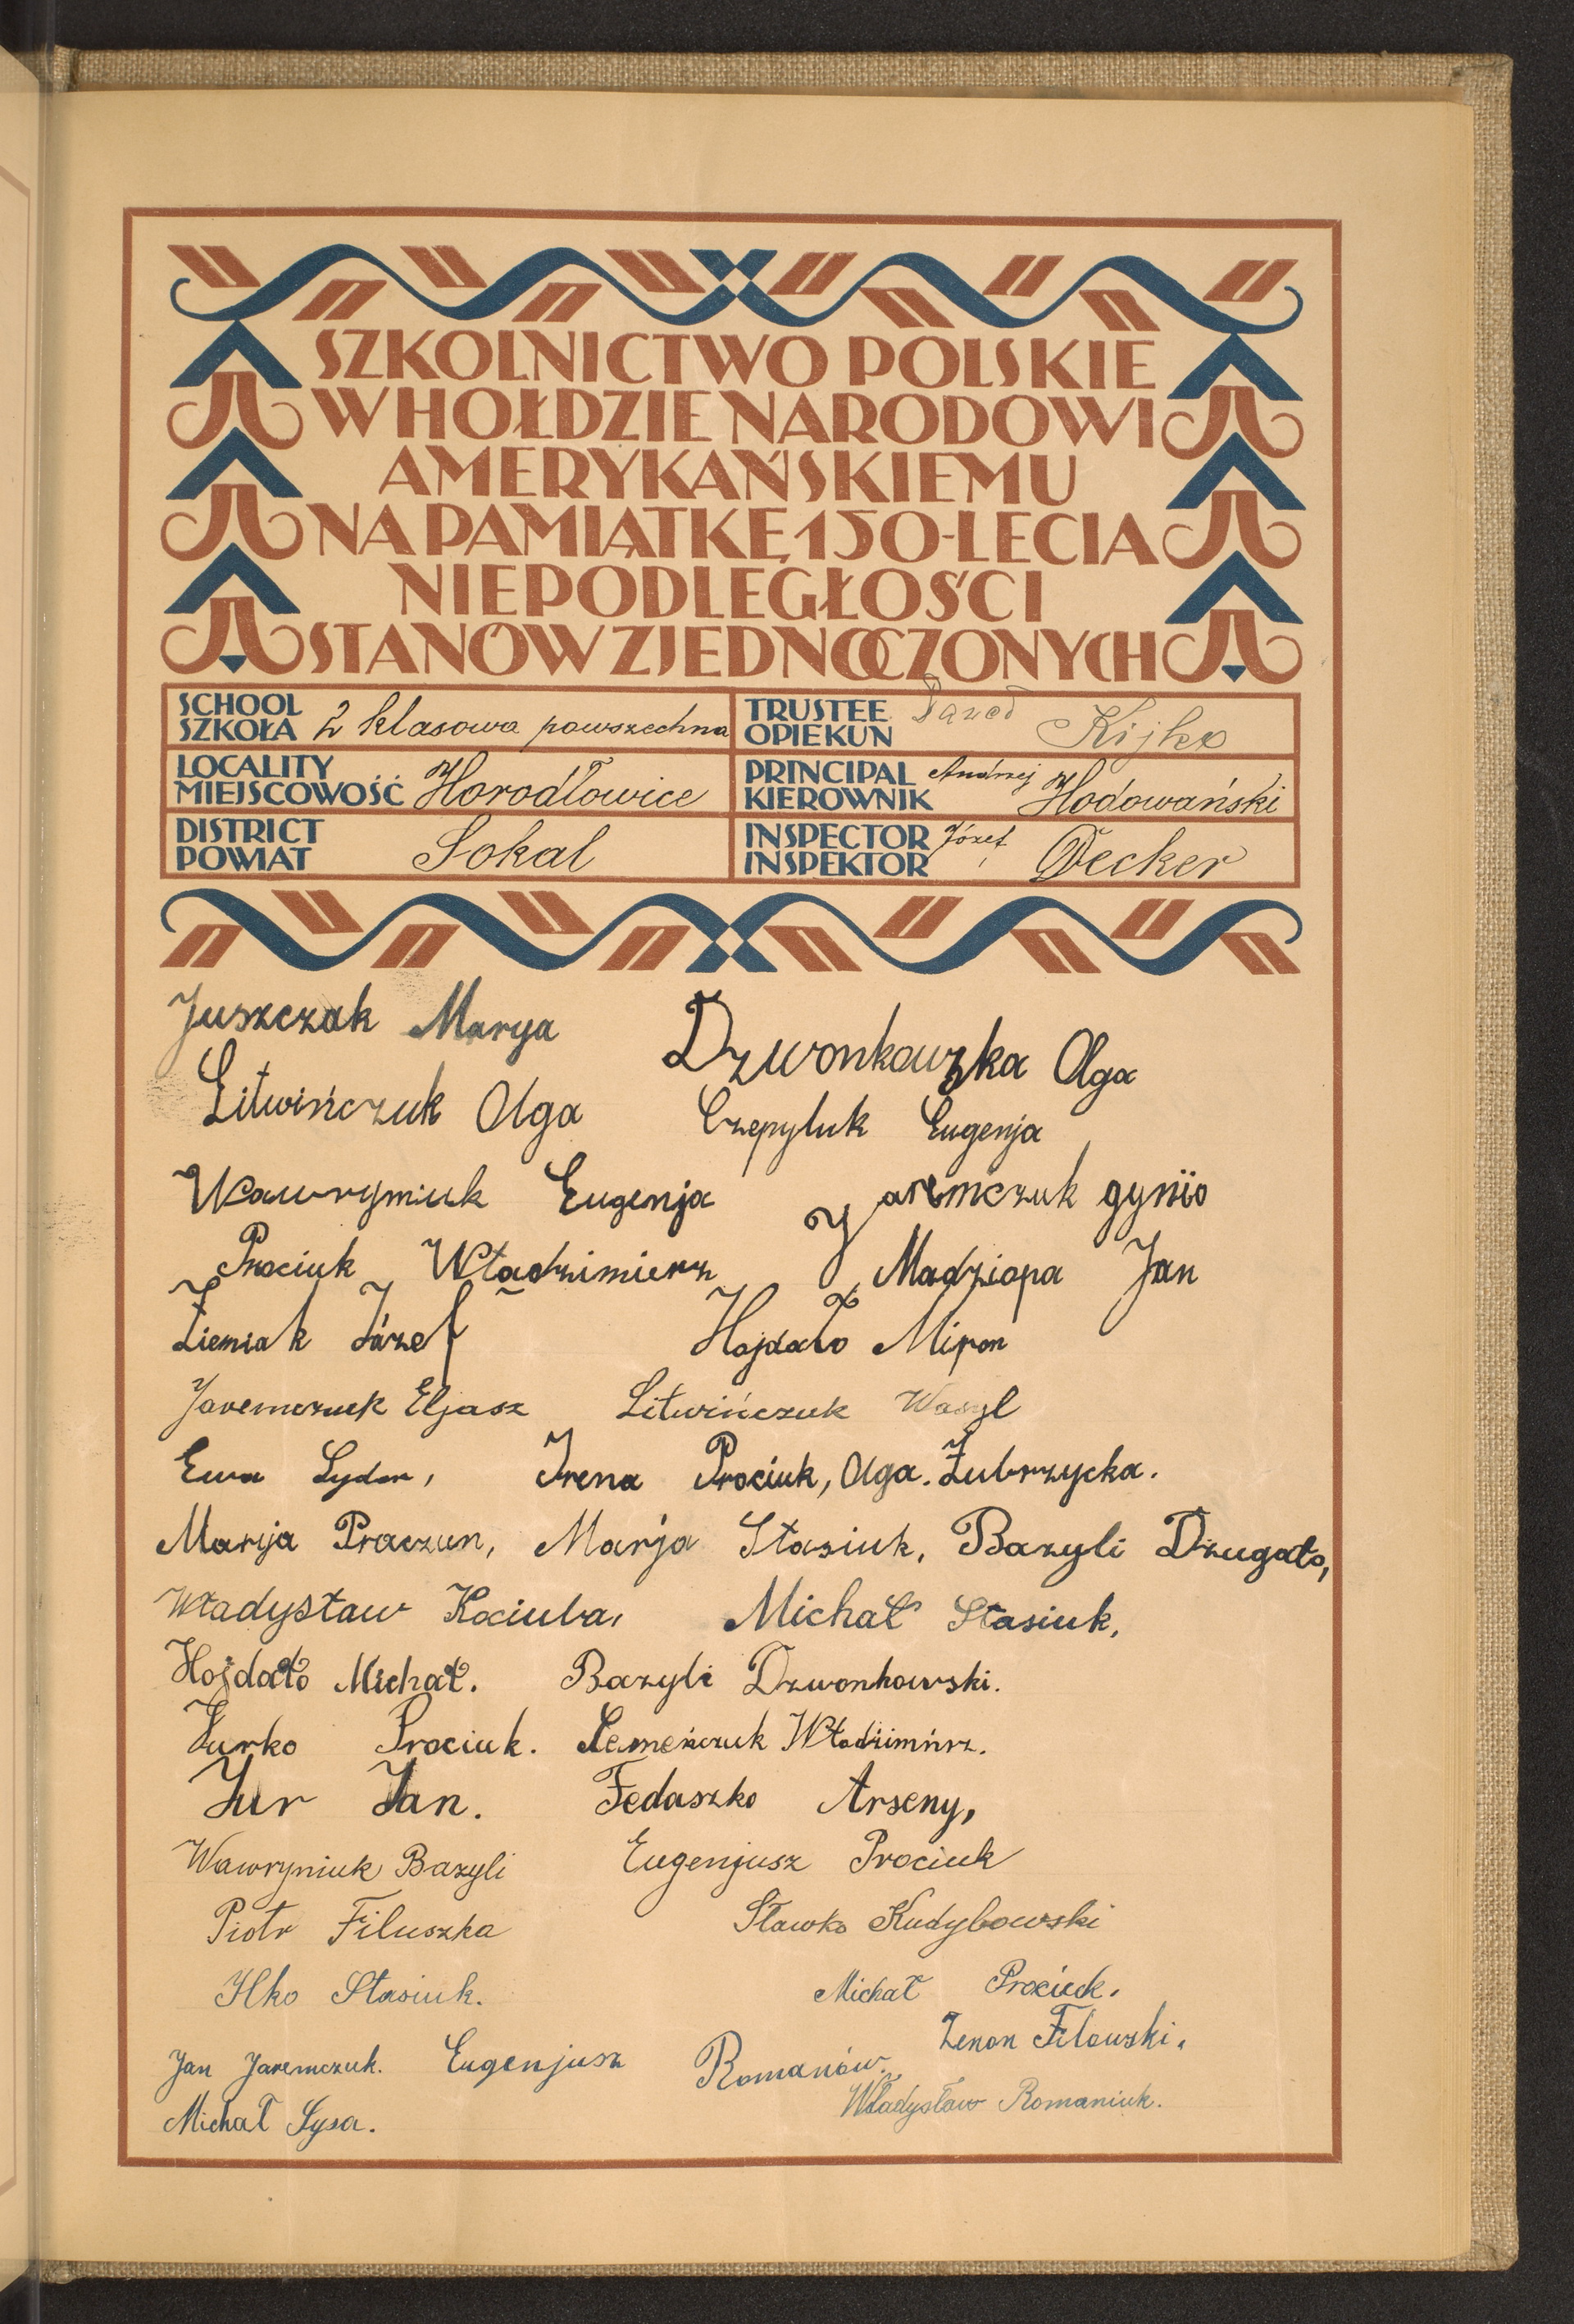 SZKOLNICTWO POLSKIE
W HOŁDZIE NARODOWI
AMERYKAŃSKIEMU
NA PAMIĄTKĘ 150-LECIA
NIEPODLEGŁOŚCI
STANÓW ZJEDNOCZONYCH
SCHOOL
SZKOŁA 2 klasowa powszechna
TRUSTEE
OPIEKUN Kijko
LOCALITY
MIEJSCOWOŚĆ Horodłowice
PRINCIPAL
KIEROWNIK Andrzej Hodowański
DISTRICT
POWIAT Sokal
INSPECTOR
INSPEKTOR Józef Decker
Juszczak Marya Dzwonkowzka Olga
Litwińczuk Olga Czepyluk Eugenja
Wawryniuk Eugenja Yaremczuk gynïo
Prociuk Władzimierz Madziapa Jan
Ziemiak Józef Hojdało Miron
Jaremczuk Eljasz Litwińczuk Wasyl
Ewa Sydor, Irena Prociuk, Olga. Zubrzycka.
Marija Praczun, Marja Stasiuk, Bazyli Dzugało,
Władysław Kociuba, Michał Stasiuk,
Hojdało Michał. Bazyli Dzwonkowski.
Jurko Prociuk. Semeńczuk
Jur Jan. Fedaszko Arseny,
Wawryniuk Bazyli Eugenjusz Prociuk
Piotr Filuszka Sławko Kudybowski
Ilko Stasiuk. Michał Prociuk.
Zenon
Jan Jaremczuk. Eugenjusz Romanów.
Władysław Romaniuk.
Michał Łysa.